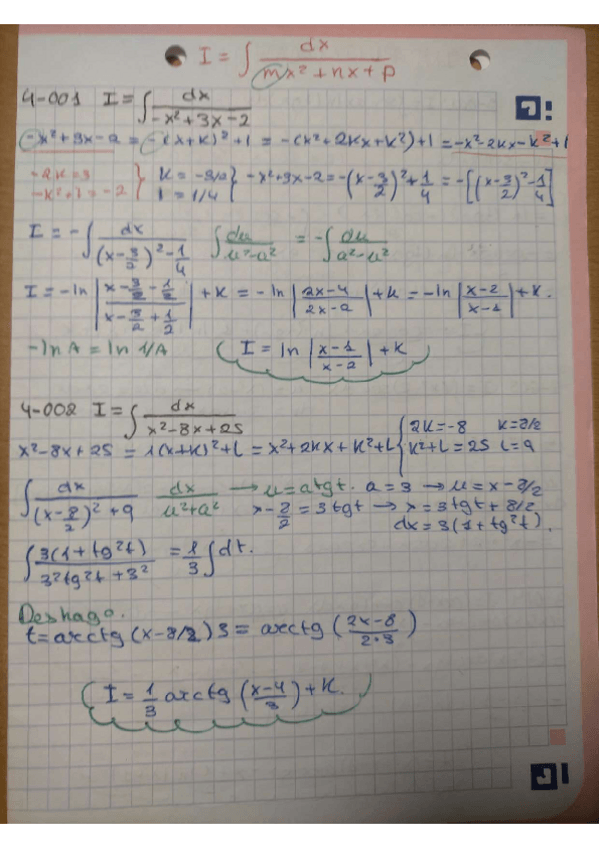 I = ∫ dx / (mx² + nx + p)
4-001 I = ∫ dx / (-x² + 3x - 2)
-x² + 3x - 2 = -(x+K)² + l = -(x² + 2Kx + K²) + l = -x² - 2Kx - K² + l
-2K = 3
-K² + l = -2 } K = -3/2
l = 1/4 } -x² + 3x - 2 = -(x - 3/2)² + 1/4 = -[(x - 3/2)² - 1/4]
I = -∫ dx / ((x - 3/2)² - 1/4) ∫ du / (u² - a²) = -∫ du / (a² - u²)
I = -ln | (x - 3/2 - 1/2) / (x - 3/2 + 1/2) | + K = -ln | (2x-4) / (2x-2) | + K = -ln | (x-2) / (x-1) | + K.
-ln A = ln 1/A ( I = ln | (x-1) / (x-2) | + K )
4-002 I = ∫ dx / (x² - 8x + 25)
x² - 8x + 25 = 1(x+K)² + L = x² + 2Kx + K² + L { 2K = -8 K = 8/2
K² + L = 25 L = 9
∫ dx / ((x - 8/2)² + 9) dx / (u² + a²) → u = a tgt. a = 3 → u = x - 8/2
x - 8/2 = 3 tgt → x = 3 tgt + 8/2
dx = 3(1 + tg²t).
∫ 3(1 + tg²t) / (3² tg²t + 3²) = 1/3 ∫ dt.
Deshago.
t = arctg (x - 8/2) 3 = arctg ( (2x-8) / (2·3) )
( I = 1/3 arctg ( (x-4) / 3 ) + K. )